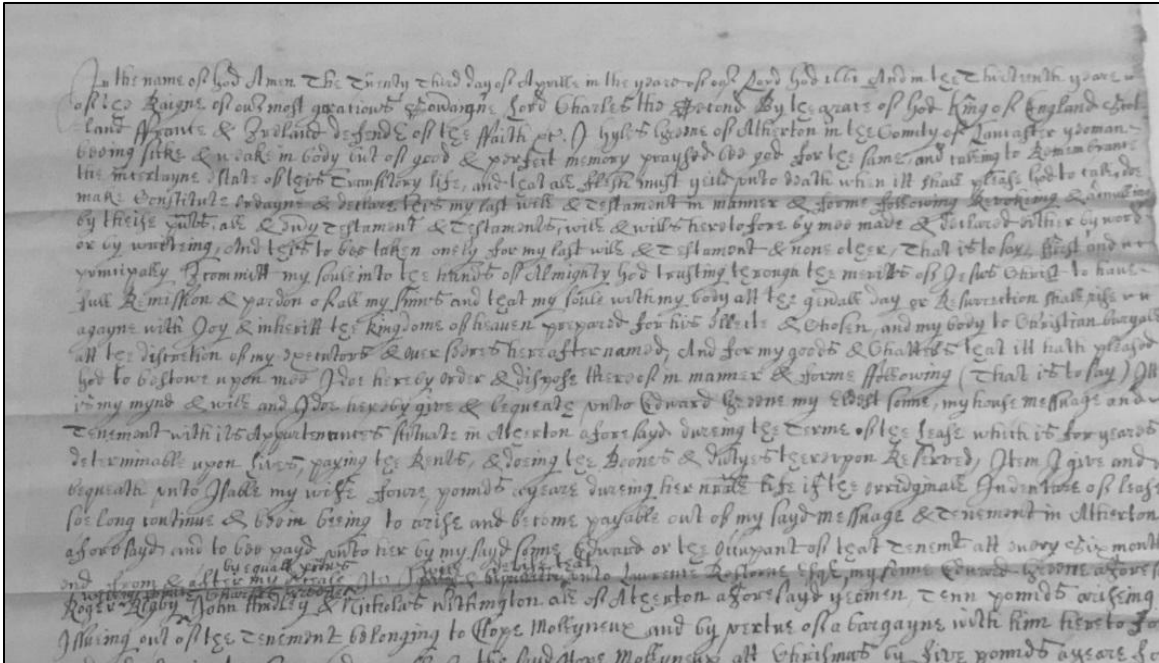 In the name of God Amen The Twenty Third day of Aprille in the yeare of our Lord God 1661 And in the Thirteenth yeare
of the Raigne of our most gratious Soveraigne Lord Charles the Second By the grace of God King of England Scot
land ffrance & Ireland defendr of the ffaith &c. I Gyles Greene of Atherton in the County of Lancaster yeoman
beeing sicke & weake in body but of good & perfect memory praysed bee god for the same, and calling to Remembrance
the uncertayne estate of this Transitory life, and that all flesh must yeild unto death when itt shall please God to call, doe
make Constitute ordayne & declare this my last will & Testament in manner & forme following Revoking & adnulling
by theise pnts, all & evy Testament & Testaments, will & wills heretofore by mee made & declared either by word
or by writeing, And this to bee taken onely for my last will & Testament & none other, That is to say, first and
principally I committ my soule into the hands of Almighty God trusting through the meritts of Jesus Christ to have
full Remission & pardon of all my sinnes and that my soule with my body att the genall day of Resurrection shall rise
agayne with Joy & inheritt the kingdome of heaven prepared for his Electe & Chosen, and my body to Christian buryall
att the discretion of my executors & overseeres hereafter named, And for my goods & Chattels that itt hath pleased
God to bestowe upon mee I doe hereby order & dispose thereof in manner & forme ffollowing (That is to say) Itt
is my mynd & will and I doe hereby give & bequeath unto Edward Greene my eldest sonne, my house messuage and
Tenement with its Appurtenances scituate in Atherton aforesayd dureing the Terme of the lease which is for yeares
determinable upon lives, paying the Rents, & doeing the Boones & dutyes thereupon Reserved, Item I give and
bequeath unto Isable my wife foure pounds a yeare dureing her nrall life if the orridginall Indenture of lease
soe long continue & bee in beeing to arise and become payable out of my sayd messuage & Tenement in Atherton
aforesayd and to bee payd unto her by my sayd sonne Edward or the occupant of that Tenemt att every Six month
by equall portions will
end from & after my decease Itm I bequeath unto Laurence Rostorne Esqr, my sonne Edward Greene afores
Roger Rigby John Hindley & Nicholas Withington all of Atherton aforesayd yeomen, Tenn pounds ariseing
Issueing out of the Tenement belonging to Elope Mollyneux and by vertue of a bargayne with him hereto fo
the sayd Mollyneux att Christmas by five pounds a yeare fo